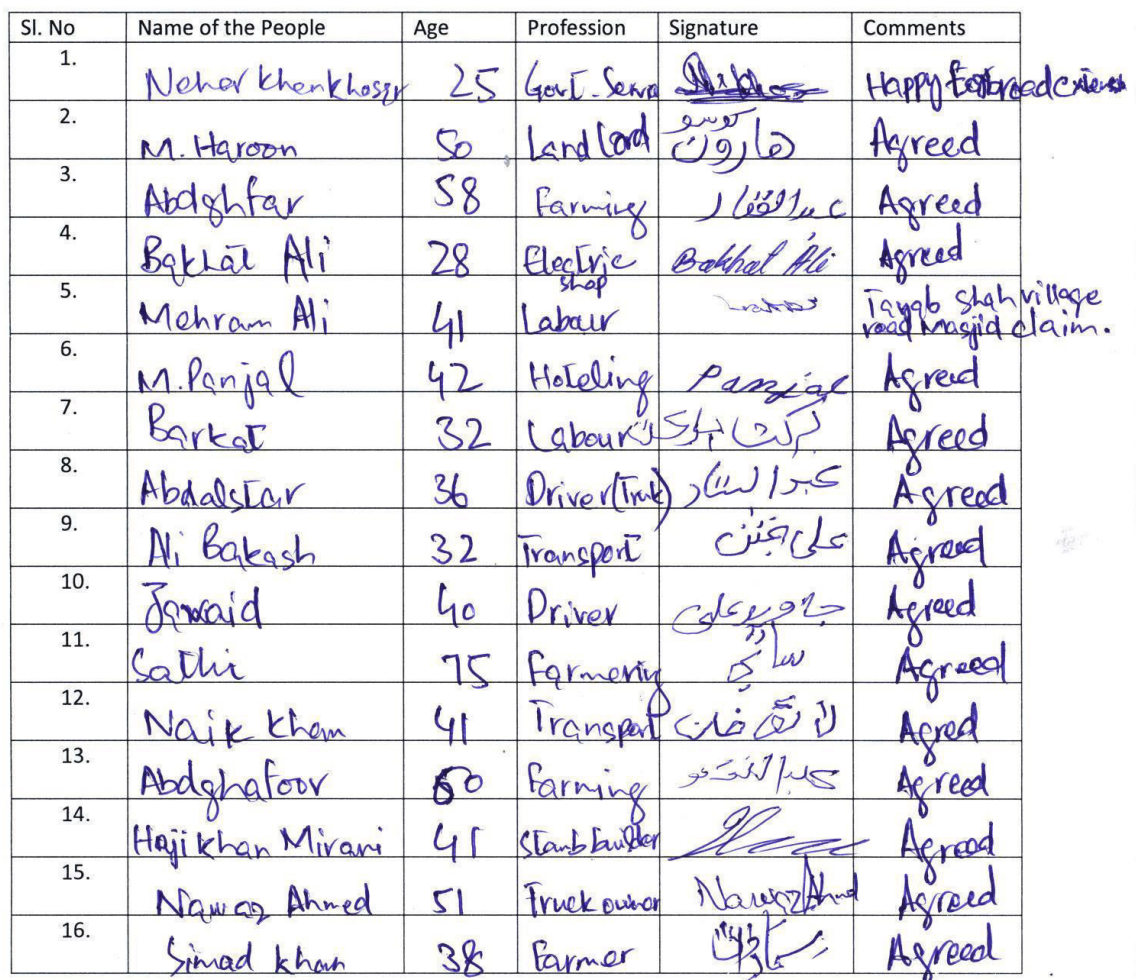 Sl. No Name of the People Age Profession Signature Comments
1. Neher Khenkhosgr 25 Govt. Serva Happy for broad
2. M. Haroon 50 Land Lord ھارون کوسو Agreed
3. Abdghfar 58 Farming عبدالغفار Agreed
4. Bakhat Ali 28 Electric shop Bakhat Ali Agreed
5. Mehram Ali 41 Labour Tayab Shah village
road Masjid claim.
6. M. Panjal 42 Hoteling Panjal Agreed
7. Barkat 32 Labour برکت Agreed
8. Abdalstar 36 Driver (Truk) عبدالستار Agreed
9. Ali Bakash 32 Transport علی بخش Agreed
10. Jawaid 40 Driver جاوید علی Agreed
11. Sathi 75 Farmering Agreed
12. Naik Khan 41 Transport خان Agred
13. Abdghafoor 60 Farming Agreed
14. Haji Khan Mirani 41 Agreed
15. Nawaz Ahmed 51 Truck owner Nawaz Ahmd Agreed
16. Simad Khan 38 Farmer Agreed